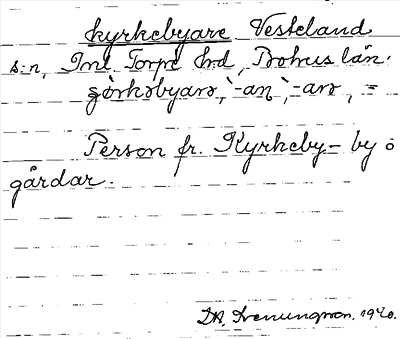 kyrkebyare Vesteland
s:n, Inl. Torpe hd, Bohus län.
körkəbyarə, -an, -arə, =
Person fr. Kyrkeby - by o
gårdar.
1920.